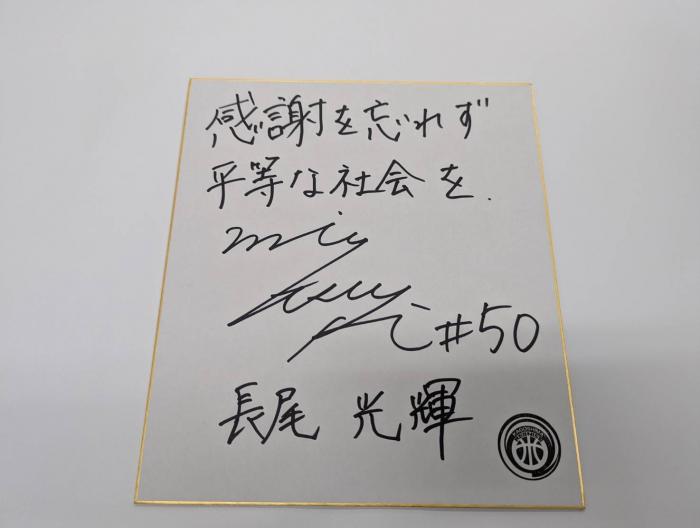 感謝を忘れず
平等な社会を.
#50
長尾 光輝